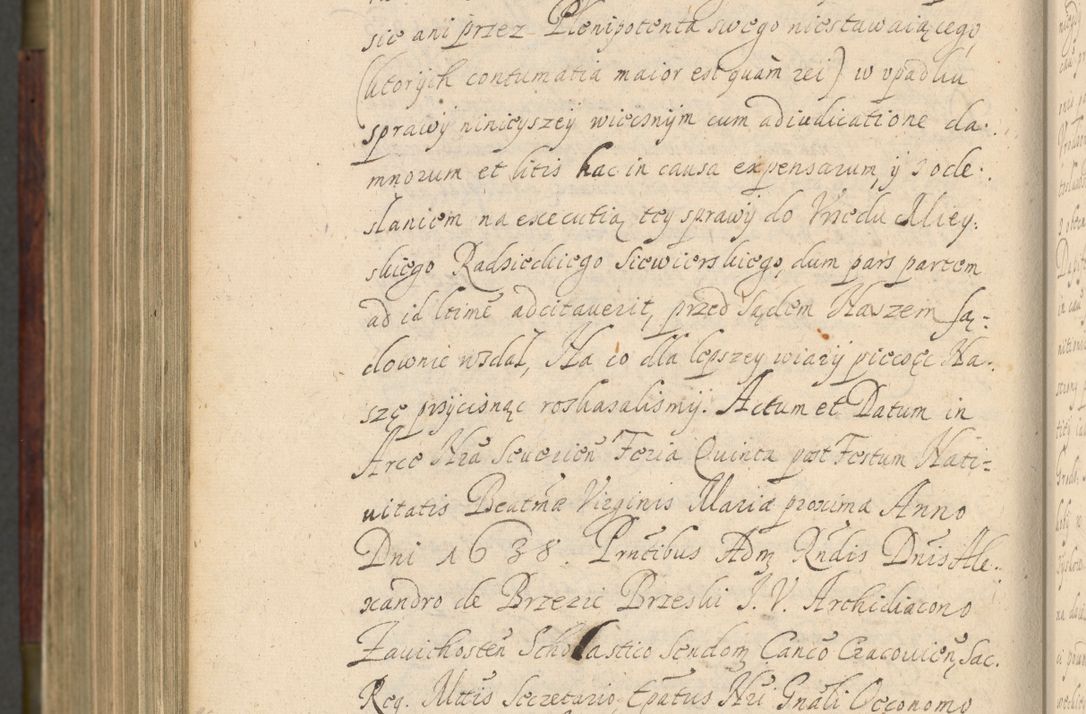 sie ani przez Plenipotenta swego niestawaiącego,
(ktorych contumatia maior est quam rei) w vpadku
sprawy ninieyszey wiecznym cum adiudicatione da:
mnorum et litis hac in causa expensarum, y z ode:
słaniem na executią tey sprawy do Vrzedu Miey:
skiego Radzieckiego Siewierskiego, dum pars partem
ad id ltime adcitauerit, przed Sądem Naszem są:
downie wzdał, Na co dla lepszey wiary pieczęc Na:
szę przycisnąc roskazalismy. Actum et Datum in
Arce Nra Seuerien Feria Quinta post Festum Nati:
uitatis Beatme Virginis Maria proxima Anno
Dni 1638. Prntibus Adm Rndis Dnis Ale:
xandro de Brzezie Brzeski I. V. Archidiacono
Zauichosten Scholastico Sendom Canco Cracouien, Sac.
Reg. Mttis Secretario, Epatus Nri Gnali Oeconomo